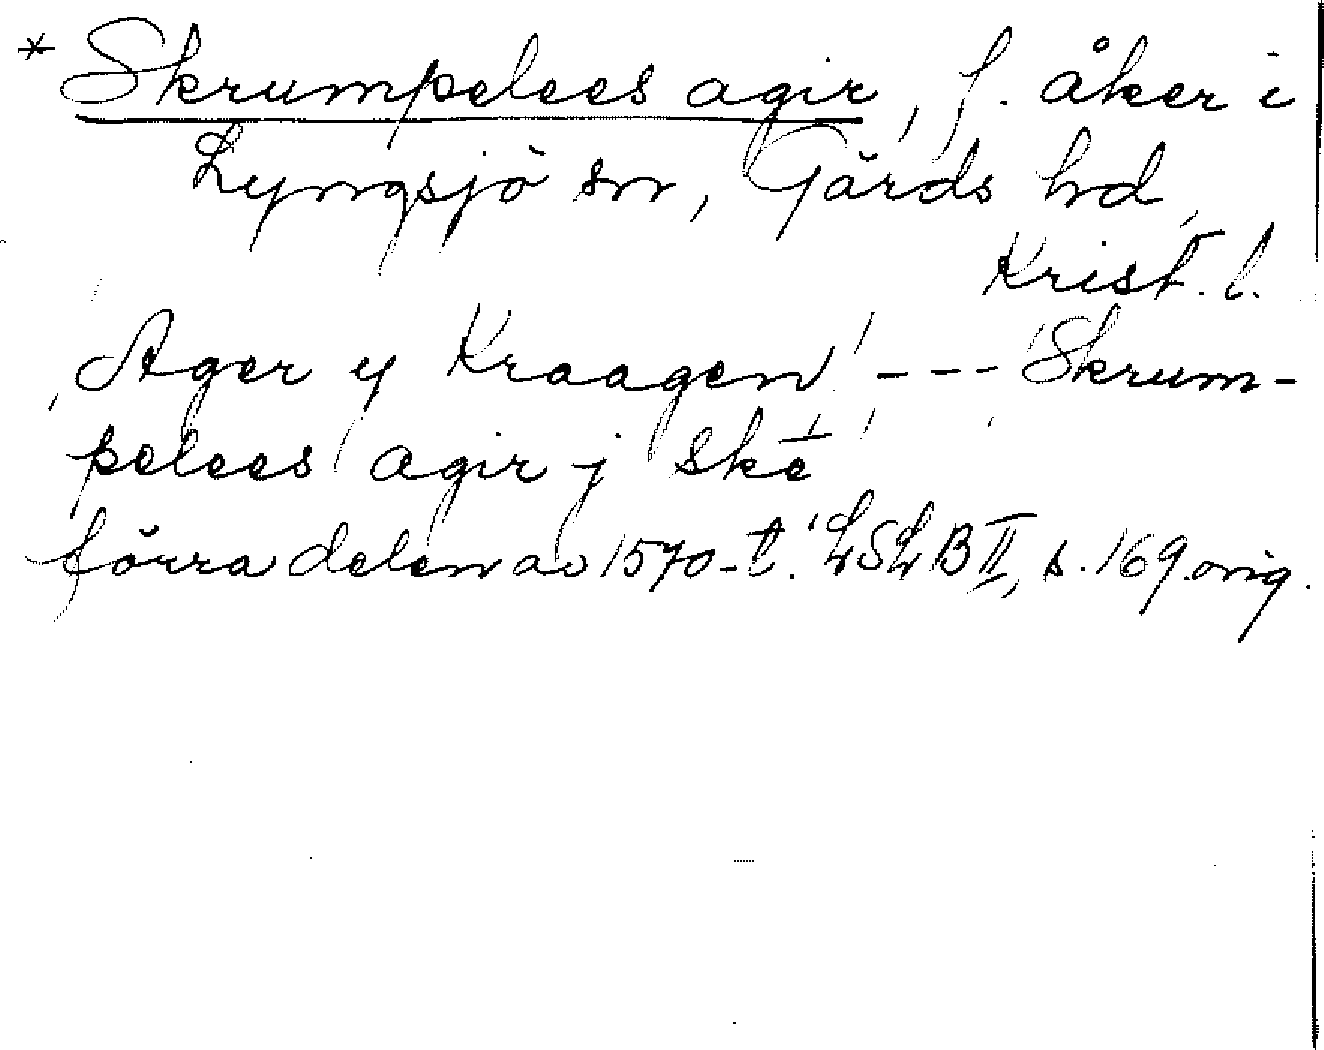 * Skrumpelees agir, f. åker i
Lyngsjö sn, Gärds hd,
Krist. l.
'Ager y Kraagen' --- 'Skrum-
pelees agir j skē'
förra delen av 1570-t. LSLB II, s. 169 orig.